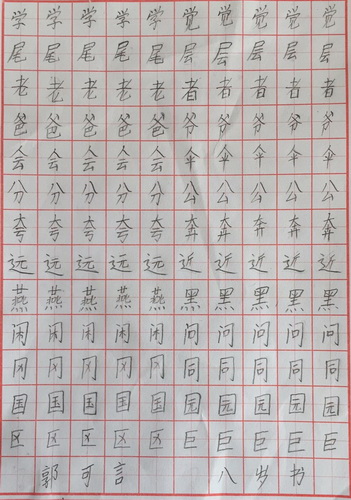 学学学学学觉觉觉觉觉
尾尾尾尾尾层层层层层
老老老老老者者者者者
爸爸爸爸爸爷爷爷爷爷
会会会会会伞伞伞伞伞
分分分分分公公公公公
夸夸夸夸夸奔奔奔奔奔
远远远远远近近近近近
燕燕燕燕燕黑黑黑黑黑
闲闲闲闲闲问问问问问
冈冈冈冈冈同同同同同
国国国国国园园园园园
区区区区区巨巨巨巨巨
郭可言 八岁书